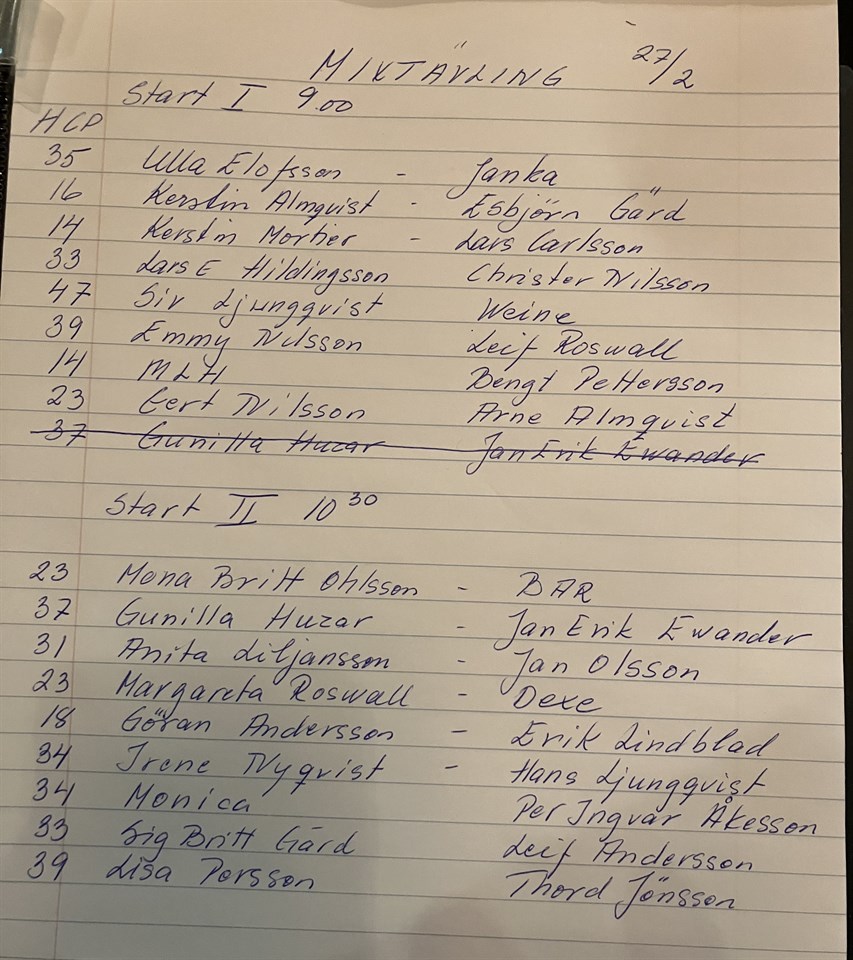 MIXTÄVLING 27/2
Start I 9.00
HCP
35 Ulla Elofsson - Janka
16 Kerstin Almqvist - Esbjörn Gärd
14 Kerstin Mortier - Lars Carlsson
33 Lars E Hildingsson Christer Nilsson
47 Siv Ljungqvist Weine
39 Emmy Nilsson Leif Roswall
14 MLH Bengt Pettersson
23 Gert Nilsson Arne Almqvist
37 Gunilla Huzar Jan Erik Ewander
Start II 10 30
23 Mona Britt Ohlsson - BAR
37 Gunilla Huzar - Jan Erik Ewander
31 Anita Liljansson - Jan Olsson
23 Margareta Roswall - Dexe
18 Göran Andersson - Erik Lindblad
34 Irene Nyqvist - Hans Ljungqvist
34 Monica Per Ingvar Åkesson
33 Sig Britt Gärd Leif Andersson
39 Lisa Persson Thord Jönsson